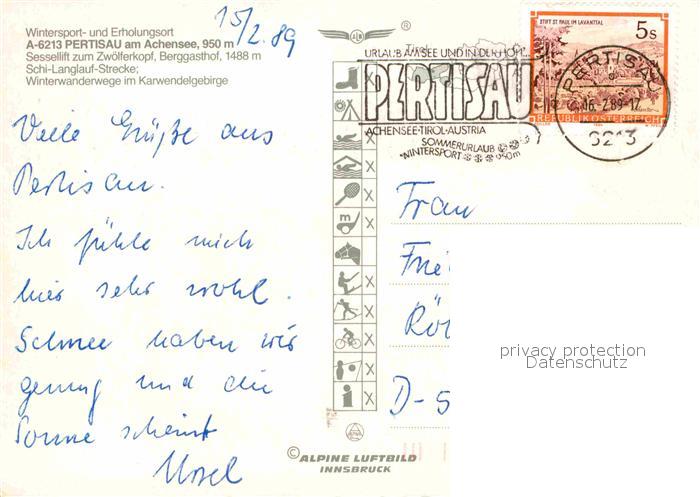 15/2.89
Wintersport- und Erholungsort
A-6213 PERTISAU am Achensee, 950 m
Sessellift zum Zwölferkopf, Berggasthof, 1488 m
Schi-Langlauf-Strecke;
Winterwanderwege im Karwendelgebirge
Viele Grüße aus
Pertisau.
Ich fühle mich
hier sehr wohl.
Schnee haben wir
genug und die
Sonne scheint
Ursel
®
URLAUB AM SEE UND IN DER
PERTISAU
ACHENSEE-TIROL-AUSTRIA
SOMMERURLAUB
WINTERSPORT 950m
STIFT ST. PAUL IM LAVANTTAL
5s
REPUBLIK ÖSTERREICH
PERTISAU
16.2.89-17
6213
Frau
D-5
privacy protection
Datenschutz
© ALPINE LUFTBILD
INNSBRUCK